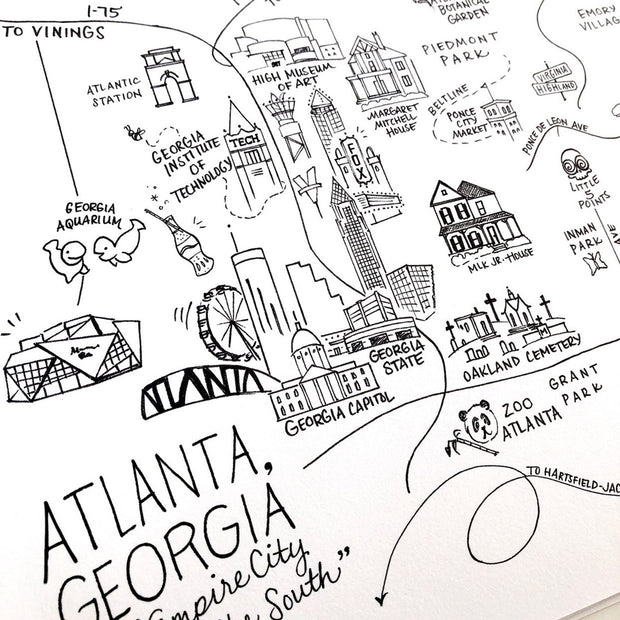 I-75
TO VININGS
BOTANICAL
GARDEN
EMORY
PIEDMONT
PARK
ATLANTIC
STATION
HIGH MUSEUM
OF ART
MARGARET
MITCHELL
HOUSE
BELTLINE
PONCE
CITY
MARKET
VIRGINIA
HIGHLAND
PONCE DE LEON AVE
GEORGIA
INSTITUTE
OF
TECHNOLOGY
TECH
FOX
LITTLE
5
POINTS
GEORGIA
AQUARIUM
MLK JR. HOUSE
INMAN
PARK
AVE
ATLANTA
GEORGIA
STATE
GEORGIA CAPITOL
OAKLAND CEMETERY
ZOO
ATLANTA
GRANT
PARK
TO HARTSFIELD-JAC
ATLANTA,
GEORGIA
Empire City
South"